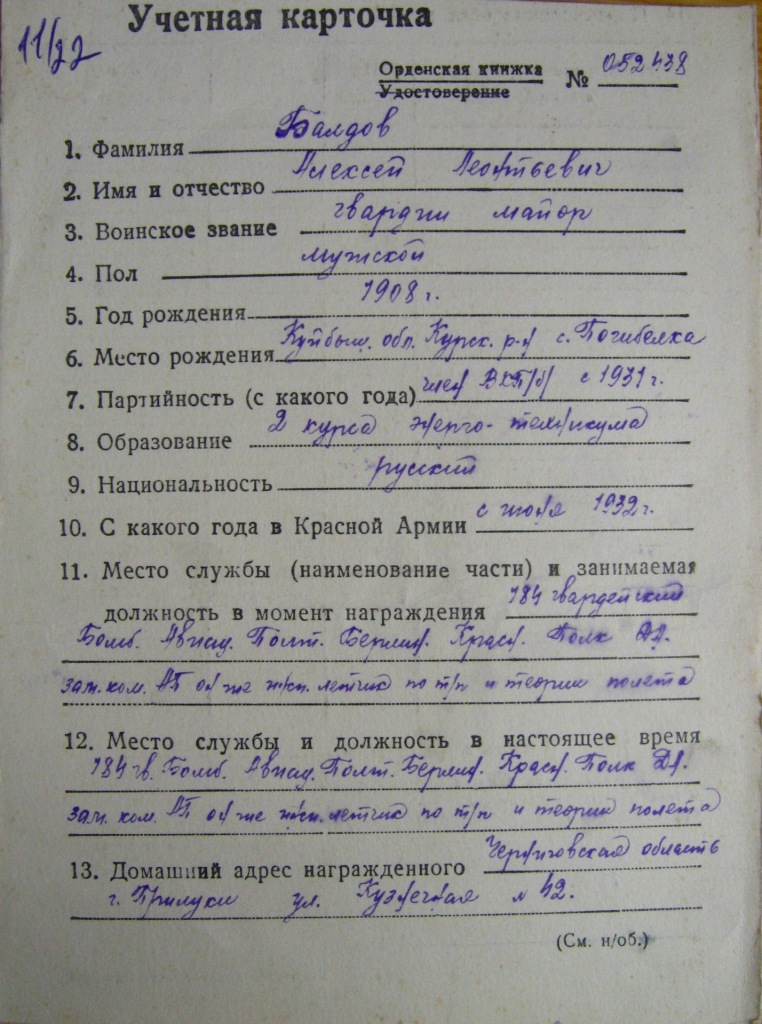 11/22
Учетная карточка
Орденская книжка
Удостоверение
№ 052438
1. Фамилия Балдов
2. Имя и отчество Алексей Леонтьевич
3. Воинское звание гвардии майор
4. Пол мужской
5. Год рождения 1908 г.
6. Место рождения Куйбыш. обл. Курск. р-н с. Погибелка
7. Партийность (с какого года) член ВКП/б/ с 1931 г.
8. Образование 2 курса энерго-техникума
9. Национальность русский
10. С какого года в Красной Армии с июня 1932 г.
11. Место службы (наименование части) и занимаемая
должность в момент награждения 184 гвардейский
Бомб. Авиац. Полт. Берлин. Красн. Полк ДД.
зам. ком. АП он же инсп. летчик по т/п и теории полета
12. Место службы и должность в настоящее время
184 гв. Бомб. Авиац. Полт. Берлин. Красн. Полк ДД.
зам. ком. АП он же инсп. летчик по т/п и теории полета
13. Домашний адрес награжденного Черниговская область
г. Прилуки ул. Кузнечная № 42.
(См. н/об.)